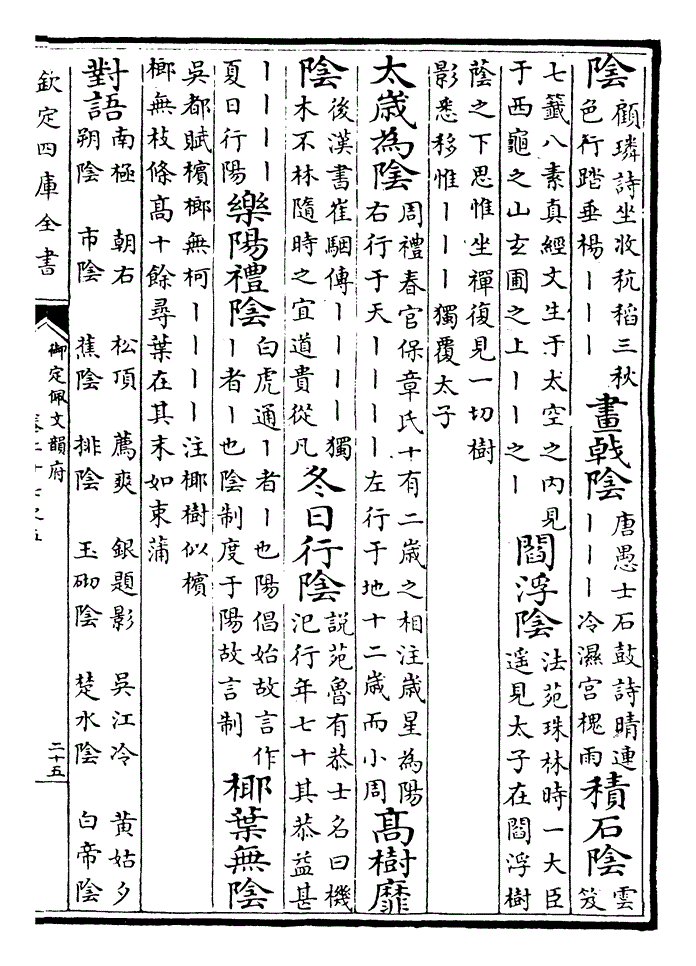 陰
顧璘詩坐收秔稻三秋
色行踏垂楊丨丨丨
畫戟陰
唐愚士石鼓詩晴連
丨丨丨冷濕宮槐雨
積石陰
雲
笈
七籤八素真經文生于太空之內見
于西龜之山玄圃之上丨丨之丨
閻浮陰
法苑珠林時一大臣
遥見太子在閻浮樹
蔭之下思惟坐禪復見一切樹
影悉移惟丨丨丨獨覆太子
太歲為陰
周禮春官保章氏十有二歲之相注歲星為陽
右行于天丨丨丨丨左行于地十二歲而小周
髙樹靡
陰
後漢書崔駰傳丨丨丨丨獨
木不林隨時之宜道貴從凡
冬日行陰
説苑魯有恭士名曰機
氾行年七十其恭益甚
丨丨丨丨
夏日行陽
樂陽禮陰
白虎通丨者丨也陽倡始故言作
丨者丨也陰制度于陽故言制
椰葉無陰
吳都賦檳榔無柯丨丨丨丨注椰樹似檳
榔無枝條髙十餘尋葉在其末如束蒲
對語
南極 朝右 松頂 薦爽 銀題影 吳江冷 黃姑夕
朔陰 市陰 蕉陰 排陰 玉砌陰 楚水陰 白帝陰
欽定四庫全書
御定佩文韻府
二十五